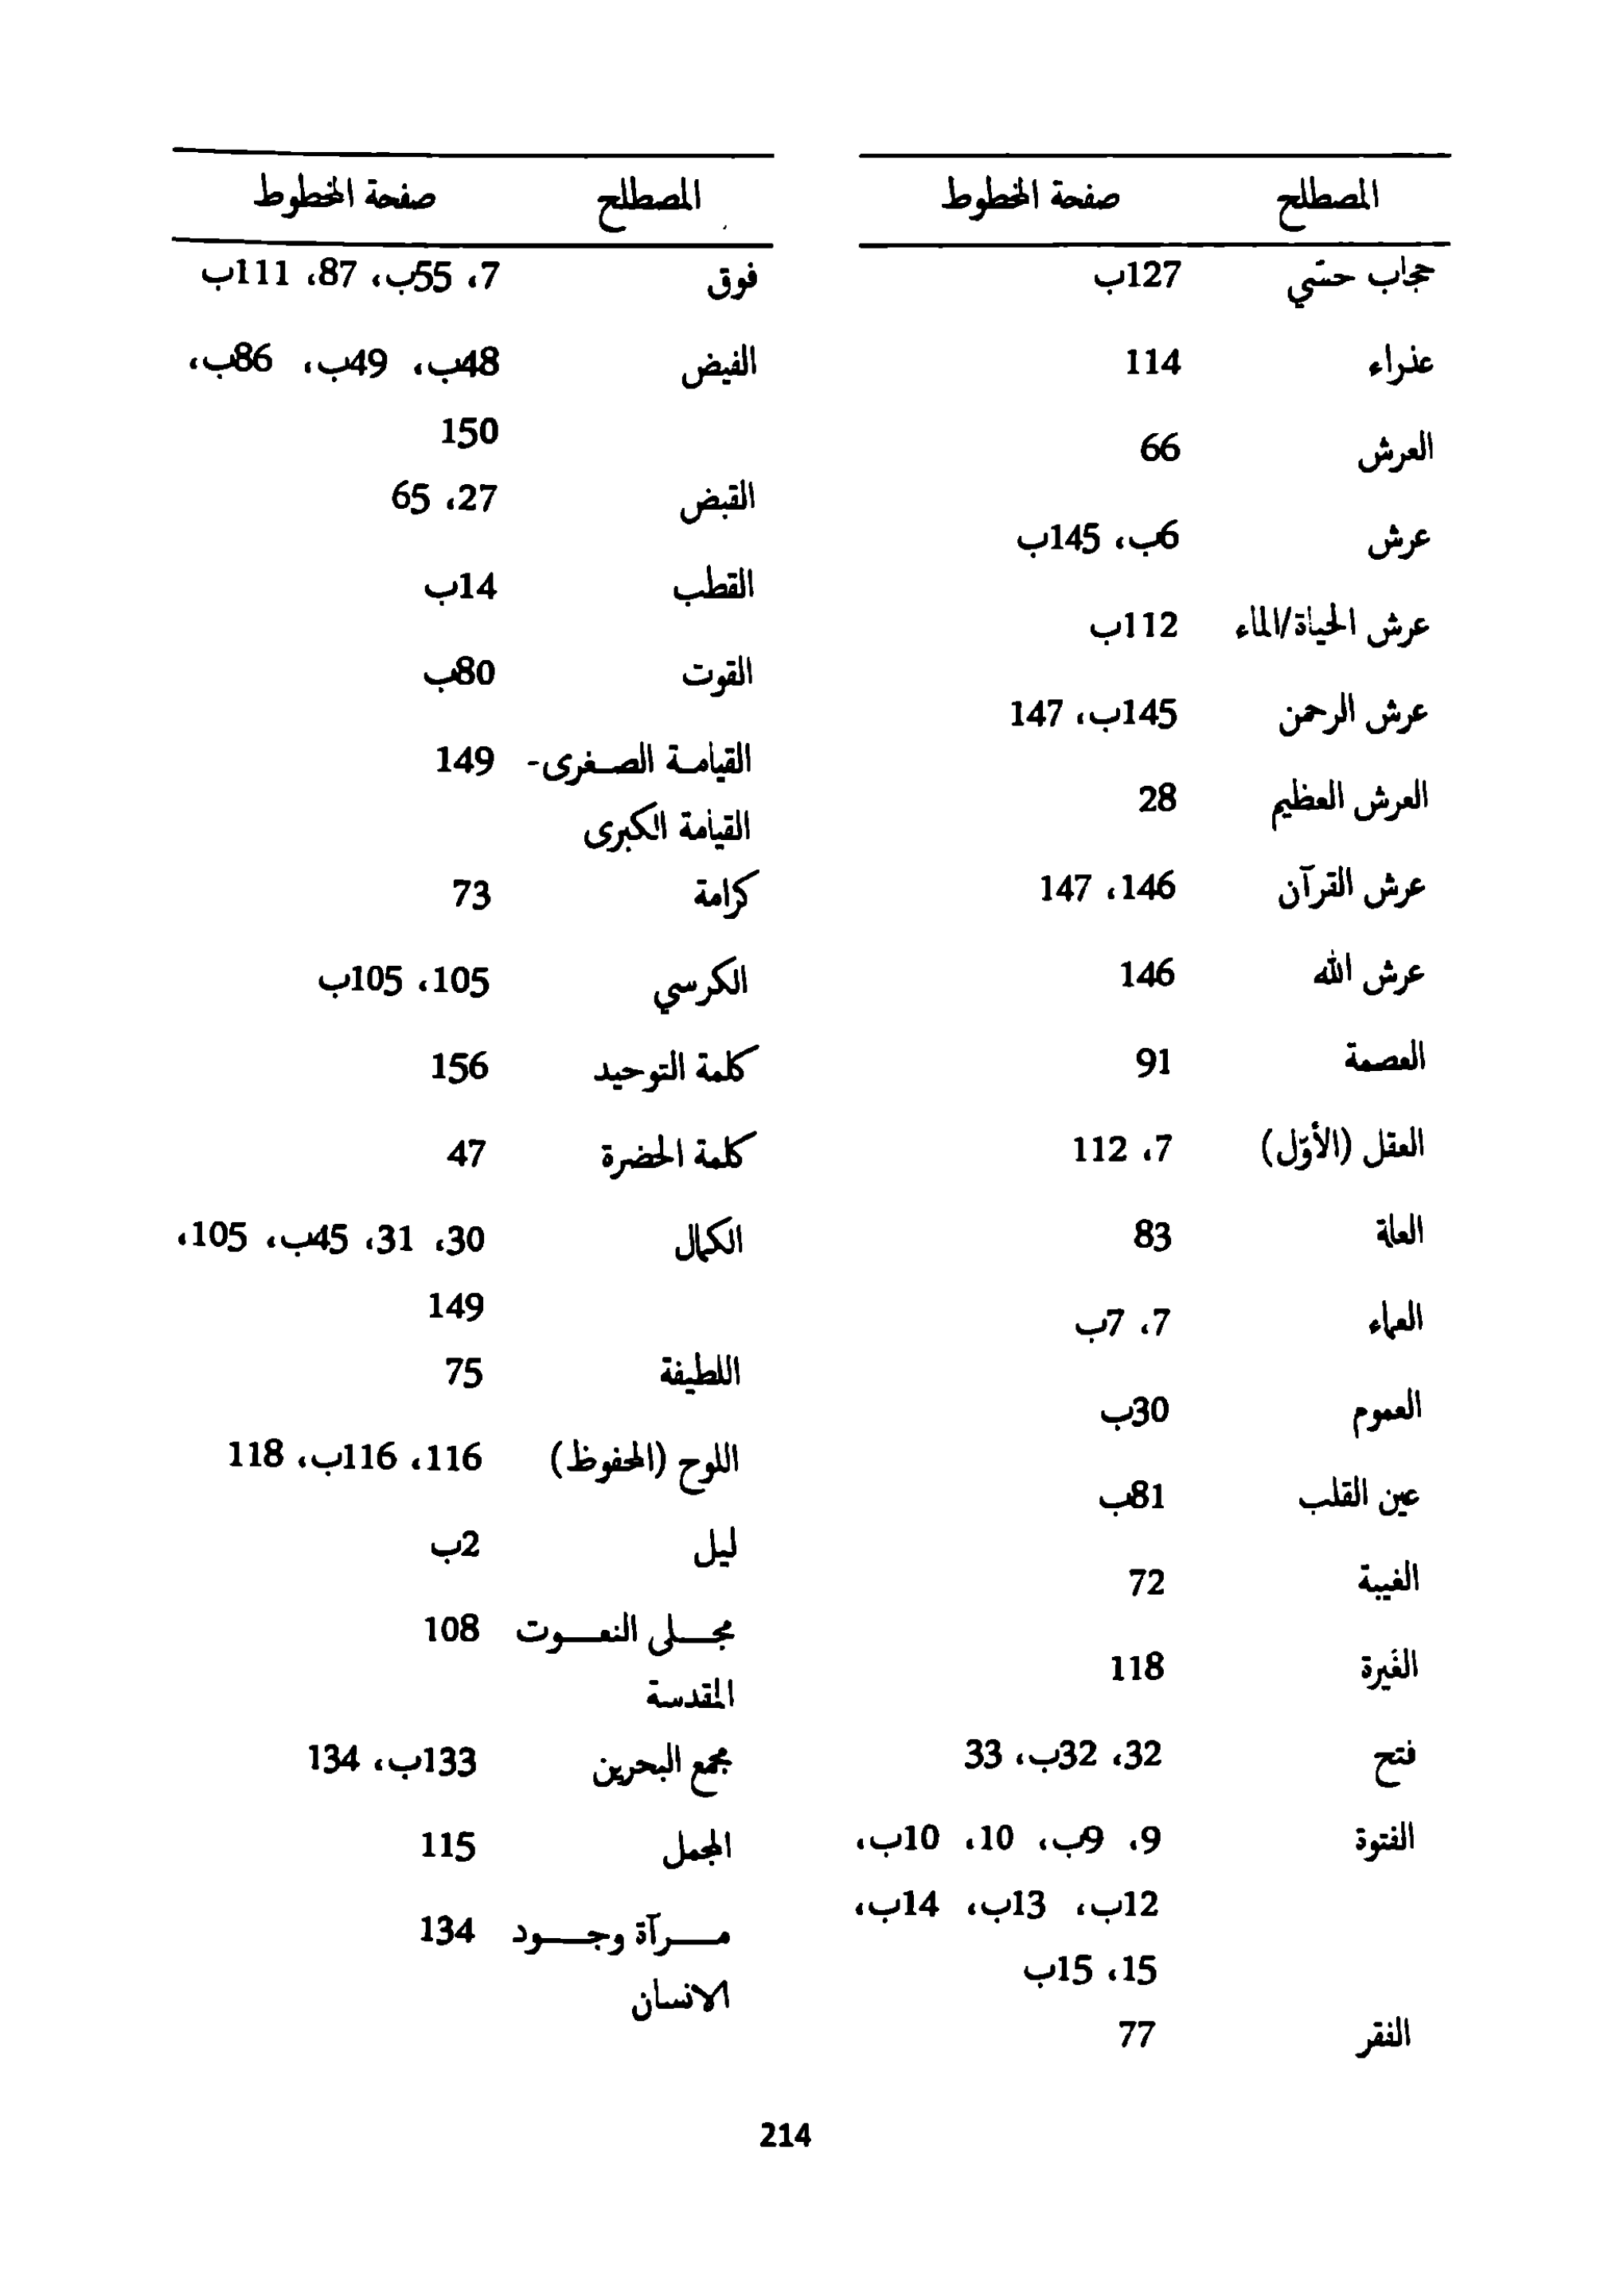 المصطلح صفحة المخطوط
حجاب حسّي 127ب
عذراء 114
العرش 66
عرش 6ب، 145ب
عرش الحياة/الماء 112ب
عرش الرحمن 145ب، 147
العرش العظيم 28
عرش القرآن 146، 147
عرش الله 146
العصمة 91
العقل (الأوّل) 7، 112
العلة 83
العماء 7، 7ب
العموم 30ب
عين القلب 81ب
الغيبة 72
الغَيرة 118
فتح 32، 32ب، 33
الفتوة 9، 9ب، 10، 10ب،
12ب، 13ب، 14ب،
15، 15ب
الفقر 77
المصطلح صفحة المخطوط
فوق 7، 55ب، 87، 111ب
الفيض 48ب، 49ب، 86ب،
150
القبض 27، 65
القطب 14ب
القوت 80ب
القيامة الصغرى- 149
القيامة الكبرى
كرامة 73
الكرسي 105، 105ب
كلمة التوحيد 156
كلمة الحضرة 47
الكمال 30، 31، 45ب، 105،
149
اللطيفة 75
اللوح (المحفوظ) 116، 116ب، 118
ليل 2ب
مجلى النعوت 108
المقدسة
مجمع البحرين 133ب، 134
المجمل 115
مرآة وجود 134
الانسان
214